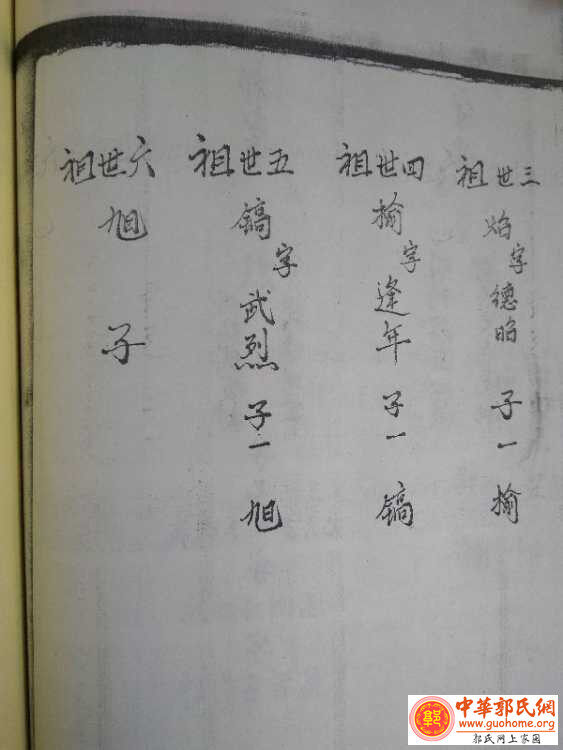 三世祖
焰字德昭 子一 揄
四世祖
揄字逢年 子一 镐
五世祖
镐字武烈 子一 旭
六世祖
旭 子
郭
中華郭氏網
www.guohome.org
郭氏网上家园